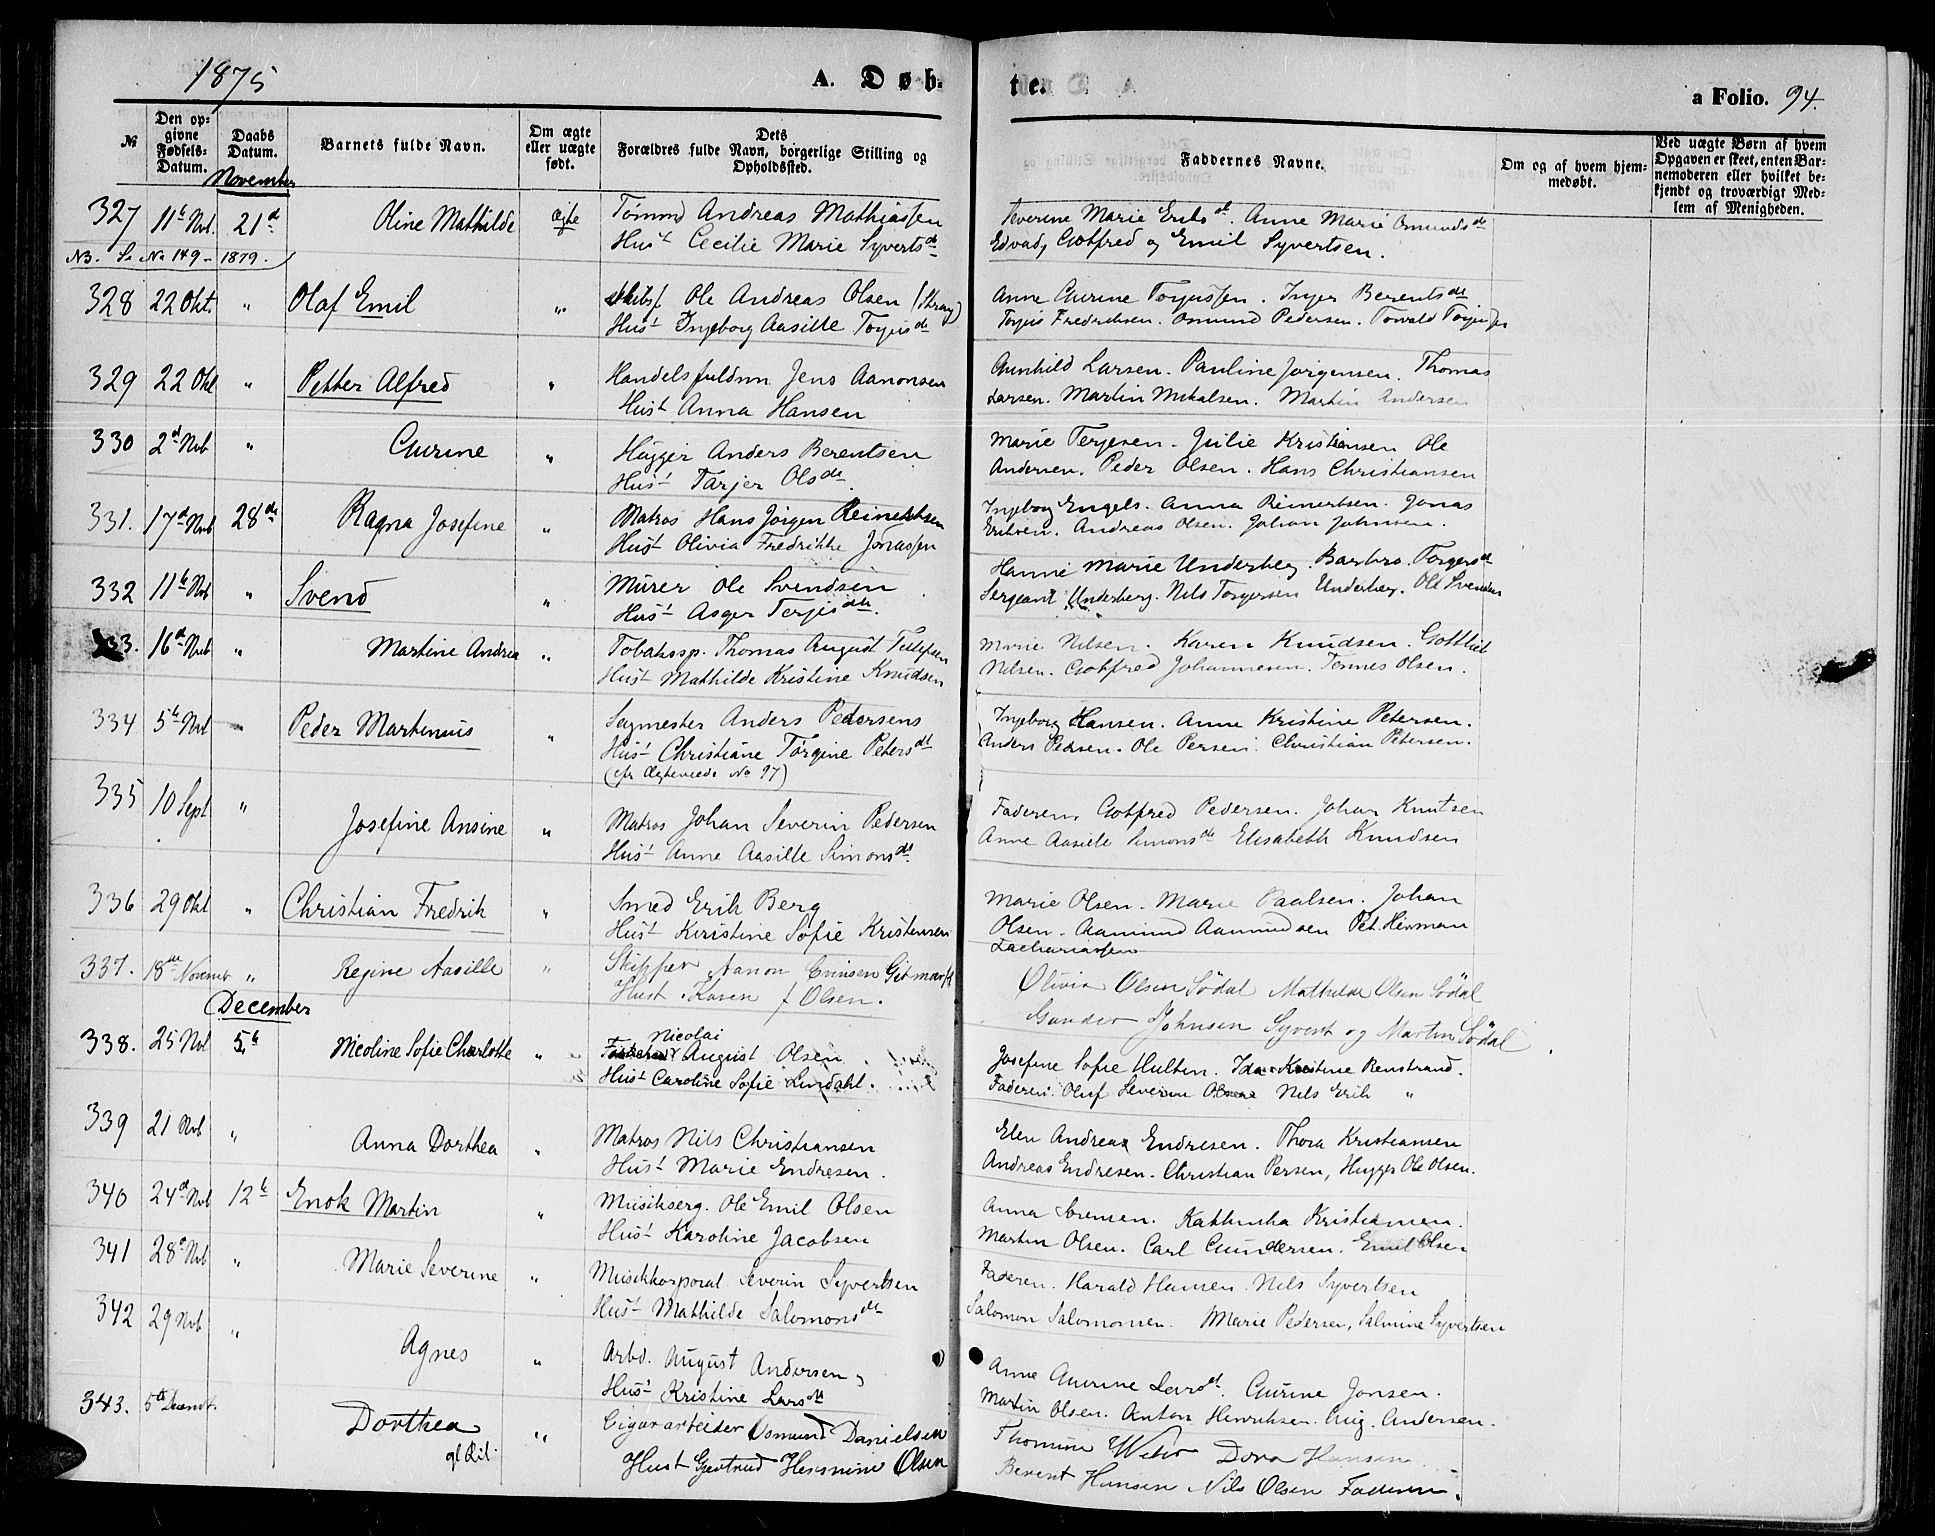 1875
A. Døb-
te.
a Folio. 94.
No
Den opgivne Fødsels-Datum.
Daabs Datum.
Barnets fulde Navn.
Om ægte eller uægte født.
Dets Forældres fulde Navn, borgerlige Stilling og Opholdssted.
Faddernes Navne.
Om og af hvem hjemmedøbt.
Ved uægte Børn af hvem Opgaven er skeet, enten Barnemoderen eller hvilket bekjendt og troværdigt Medlem af Menigheden.
November
327 11te Nvb. 21de Oline Mathilde Ægte Tømmd Andreas Mathiassen
Hust Cecilie Marie Syvertsdt
Severine Marie Eriksdt. Anne Marie Osmundsdt
Edvard, Gotfred og Emil Syvertsen.
NB. Se No 149 - 1879.
328 22 Okt. " Olaf Emil " Skibsf. Ole Andreas Olsen
Hust Ingeborg Aasille Torjusdtr
Anne Gurine Torjussen. Inger Berentsdtr
Torjus Fredriksen. Osmund Pedersen. Torvald Torjussen
329 22 Okt " Petter Alfred " Handelsfuldm. Jens Aanonsen
Hust Anna Hansen
Gunhild Larsen. Pauline Jørgensen. Thomas
Larsen. Martin Mikalsen. Martin Andersen
330 2d Nvb " Gurine " Hugger Anders Berentsen
Hust Tarjer Olsdtr.
Marie Terjesen. Julie Kristiansen Ole
Andersen. Peder Olsen. Hans Christiansen
331. 17d Nvb 28de Ragna Josefine " Matros Hans Jørgen Reinertsen
Hust Olivia Fredrikke Jonassen
Ingeborg Engels. Anna Reinertsen. Jonas
Eriksen. Andreas Olsen. Johan Johnsen.
332 11te Nvb " Svend " Murer Ole Svendsen
Hust Asger Terjesdtr.
Hanne Marie Underberg. Barbro Torgersdt
Sergeant Underberg. Nils Torgersen Underberg. Ole Svendsen
333. 16d Nvb " Martine Andrea " Tobaksp. Thomas August Tellefsen
Hust Mathilde Kristine Knudsen
Marie Nilsen. Karen Knudsen. Gottlieb
Nilsen. Gotfred Johannesen. Tønnes Olsen.
334 5te Nvb " Peder Martinius " Sagmester Anders Pedersens
Hust Christiane Torgine Petersdt
(cfr Ægteviede No 97)
Ingeborg Hansen. Anne Kristine Petersen.
Anders Pedersen. Ole Persen. Christian Petersen.
335 10 Sept " Josefine Ansine " Matros Johan Severin Pedersen
Hust Anne Aasille Simonsdt.
Faderen, Gotfred Pedersen. Johan Knutsen
Anne Aasille Simonsdtr Elisabeth Knudsen
336 29 Okt " Christian Fredrik " Smed Erik Berg
Hust Kiristine Sofie Kristensen
Marie Olsen. Marie Paalsen. Johan
Olsen. Aamund Aamundsen Pet. Herman
Zachariassen
337. 18de Novemb " Regine Aasille " Skipper Aanon Gitmark
Hust. Karen f Olsen.
Olivia Olsen Södal Mathilde Olsen Södal
Gunder Johnsen Syvert og Martin Södal
December
338. 25 Nvb 5te Nicoline Sofie Charlotte " Nicolai
August Olsen
Hust Caroline Sofie Lindahl.
Josefine Sofie Hulten. Ida Kristine Renstrand.
Faderen. Oluf Severin Olsen Nils Erik "
339 21 Nvb " Anna Dorthea " Matros Nils Christiansen
Hust Marie Endresen.
Elen Andrea Endresen. Thora Kristiansen
Andreas Endresen. Christian Persen, Hugger Ole Olsen.
340 24d Nvb 12te Enok Martin " Musikserg. Ole Emil Olsen
Hust Karoline Jacobsen
Anna Sørensen. Kathinka Kristiansen.
Martin Olsen. Carl Gundersen. Emil Olsen
341 28d Nvb " Marie Severine " Musikkorporal Severin Syvertsen
Hust Mathilde Salomonsdtr
Faderen. Harald Hansen. Nils Syvertsen
Salomon Salomonsen. Marie Pedersen, Salmine Syvertsen
342 29 Nvb " Agnes " Arbd. August Andersen,
Hust Kristine Larsdtr
Anne Gurine Larsdt. Gurine Jonsen.
Martin Olsen. Anton Henriksen. Aug. Andersen.
343. 5te Decembr. Dorthea " Cigararbeider Osmund Danielsen
Hust Gjertrud Hermine Olsen
Thomine Weber Dora Hansen
Berent Hansen Nils Olsen Faderen.